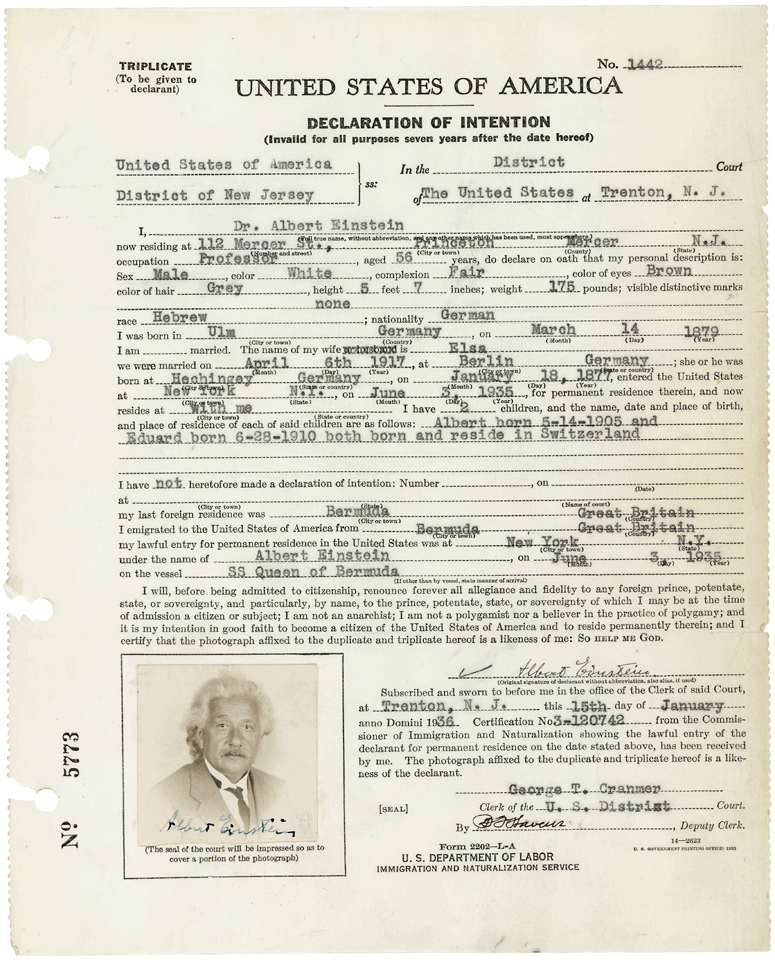 TRIPLICATE
(To be given to
declarant)
No. 1442
UNITED STATES OF AMERICA
DECLARATION OF INTENTION
(Invalid for all purposes seven years after the date hereof)
United States of America
District of New Jersey
ss:
In the District Court
of The United States at Trenton, N. J.
I, Dr. Albert Einstein
(Full true name, without abbreviation, and any other name which has been used, must appear here)
now residing at 112 Mercer St., Princeton Mercer N.J.
(Number and street) (City or town) (County) (State)
occupation Professor, aged 56 years, do declare on oath that my personal description is:
Sex Male, color White, complexion Fair, color of eyes Brown
color of hair Grey, height 5 feet 7 inches; weight 175 pounds; visible distinctive marks
none
race Hebrew; nationality German
I was born in Ulm Germany, on March 14 1879
(City or town) (Country) (Month) (Day) (Year)
I am married. The name of my wife is Elsa
we were married on April 6th 1917, at Berlin Germany; she or he was
(Month) (Day) (Year) (City or town) (State or country)
born at Hechingey Germany, on January 18, 1877, entered the United States
(City or town) (State or country) (Month) (Day) (Year)
at New York N.Y., on June 3, 1935, for permanent residence therein, and now
(City or town) (State) (Month) (Day) (Year)
resides at With me I have 2 children, and the name, date and place of birth,
(City or town) (State or country)
and place of residence of each of said children are as follows: Albert born 5-14-1905 and
Eduard born 6-28-1910 both born and reside in Switzerland
I have not heretofore made a declaration of intention: Number, on
(Date)
at
(City or town) (State) (Name of court)
my last foreign residence was Bermuda Great Britain
(City or town) (Country)
I emigrated to the United States of America from Bermuda Great Britain
(City or town) (Country)
my lawful entry for permanent residence in the United States was at New York N.Y.
(City or town) (State)
under the name of Albert Einstein, on June 3, 1935
(Month) (Day) (Year)
on the vessel SS Queen of Bermuda
(If other than by vessel, state manner of arrival)
I will, before being admitted to citizenship, renounce forever all allegiance and fidelity to any foreign prince, potentate,
state, or sovereignty, and particularly, by name, to the prince, potentate, state, or sovereignty of which I may be at the time
of admission a citizen or subject; I am not an anarchist; I am not a polygamist nor a believer in the practice of polygamy; and
it is my intention in good faith to become a citizen of the United States of America and to reside permanently therein; and I
certify that the photograph affixed to the duplicate and triplicate hereof is a likeness of me: SO HELP ME GOD.
Albert Einstein
(Original signature of declarant without abbreviation, also alias, if used)
Subscribed and sworn to before me in the office of the Clerk of said Court,
at Trenton, N. J. this 15th day of January
anno Domini 1936. Certification No 3-120742 from the Commis-
sioner of Immigration and Naturalization showing the lawful entry of the
declarant for permanent residence on the date stated above, has been received
by me. The photograph affixed to the duplicate and triplicate hereof is a like-
ness of the declarant.
George T. Cranmer
[SEAL] Clerk of the U. S. District Court.
By , Deputy Clerk.
Form 2202-L-A
U. S. DEPARTMENT OF LABOR
IMMIGRATION AND NATURALIZATION SERVICE
14-2623
U. S. GOVERNMENT PRINTING OFFICE: 1935
Albert Einstein
(The seal of the court will be impressed so as to
cover a portion of the photograph)
No 5773